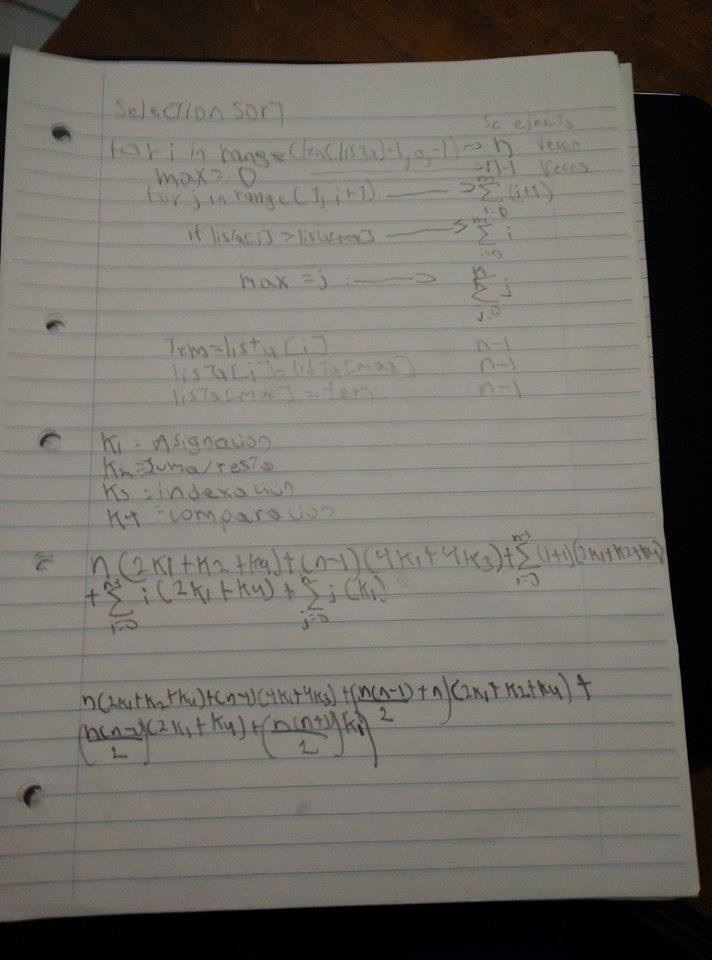 Selection Sort
Se ejecuta
for i in range(len(lista)-1,0,-1) → n veces
max=0 → n-1 veces
for j in range(1,i+1) → n-1 Σ i=0 (i+1)
if lista[j]>lista[max] → n-1 Σ i=0 i
max=j → Σ j=0 j
Tem=lista[i] n-1
lista[i]=lista[max] n-1
lista[max]=tem n-1
K1: Asignacion
K2=Suma/resta
K3:indexacion
K4=comparacion
n(2K1+K2+K4)+(n-1)(4K1+4K3)+n-1 Σ i=0 (i+1)(2K1+K2+K4)
+n-1 Σ i=0 i(2K1+K4)+n Σ j=0 j(K1)
n(2K1+K2+K4)+(n-1)(4K1+4K3)+(n(n-1)/2+n)(2K1+K2+K4)+
(n(n-1)/2)(2K1+K4)+(n(n+1)/2)K1)